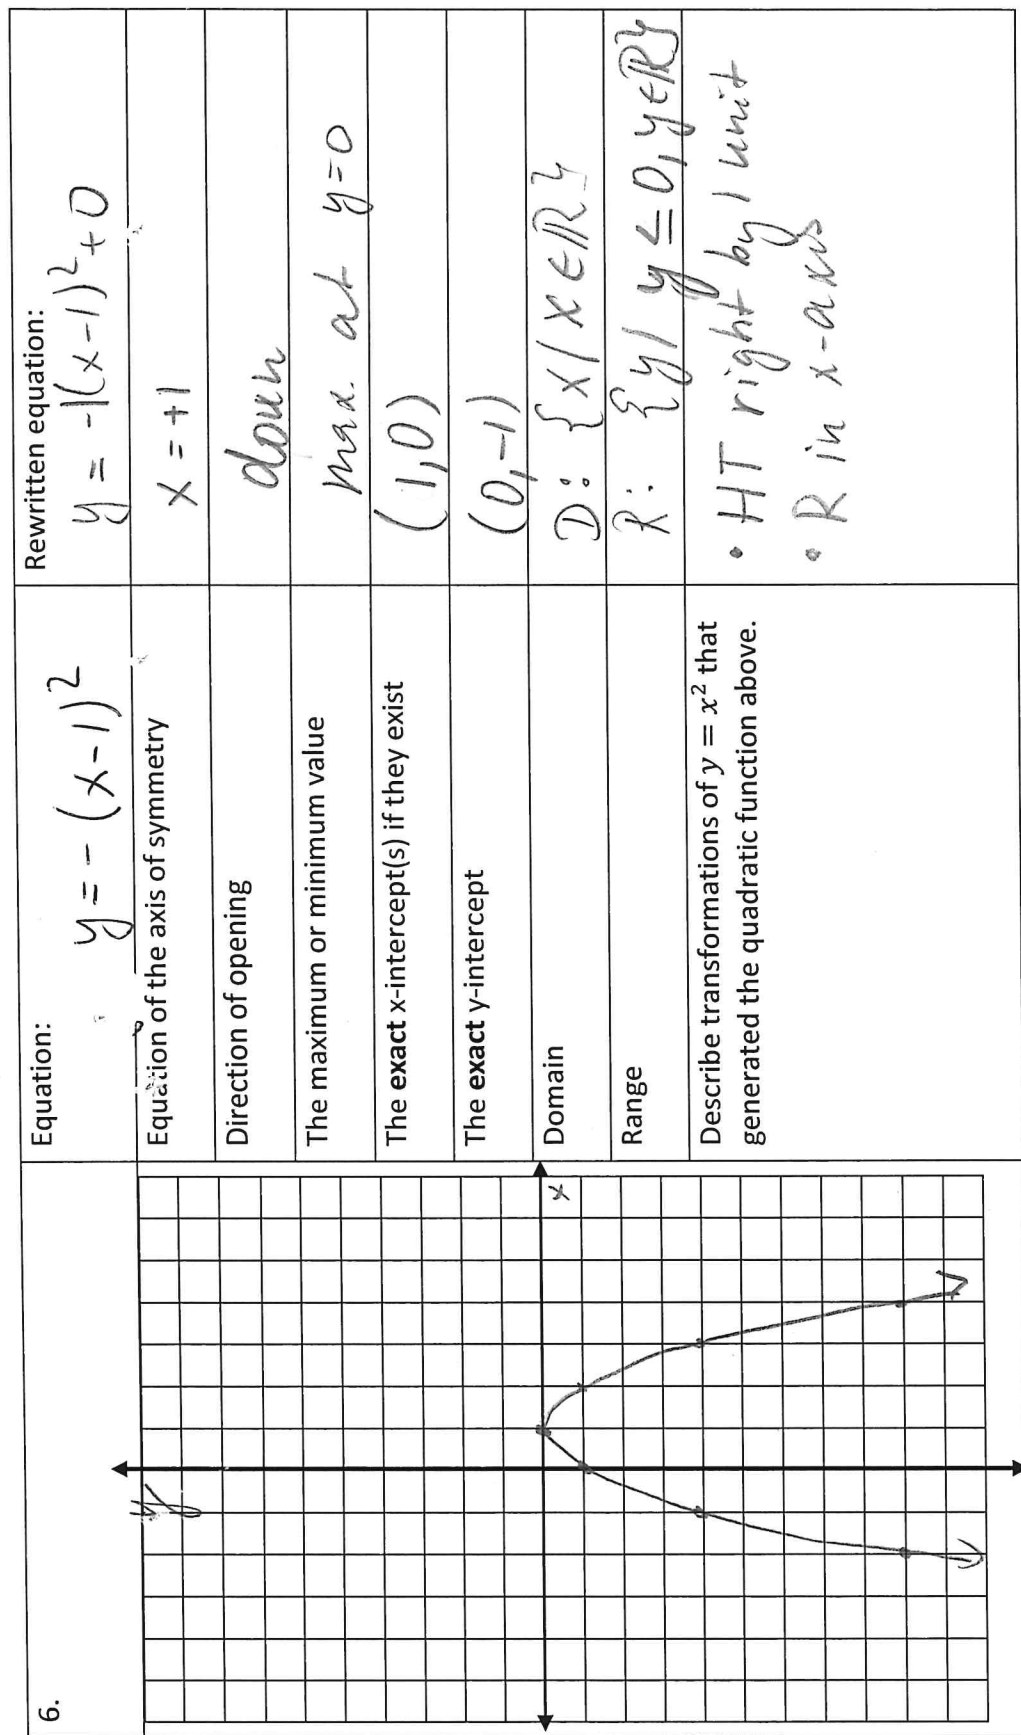 6.
y
x
Equation:
y = - (x-1)²
Rewritten equation:
y = -1(x-1)² + 0
Equation of the axis of symmetry
x = +1
Direction of opening
down
The maximum or minimum value
max at y=0
The exact x-intercept(s) if they exist
(1,0)
The exact y-intercept
(0,-1)
Domain
D: {x/x∈ℝ}
Range
R: {y/ y ≤ 0, y∈ℝ}
Describe transformations of y = x² that
generated the quadratic function above.
• HT right by 1 unit
• R in x-axis